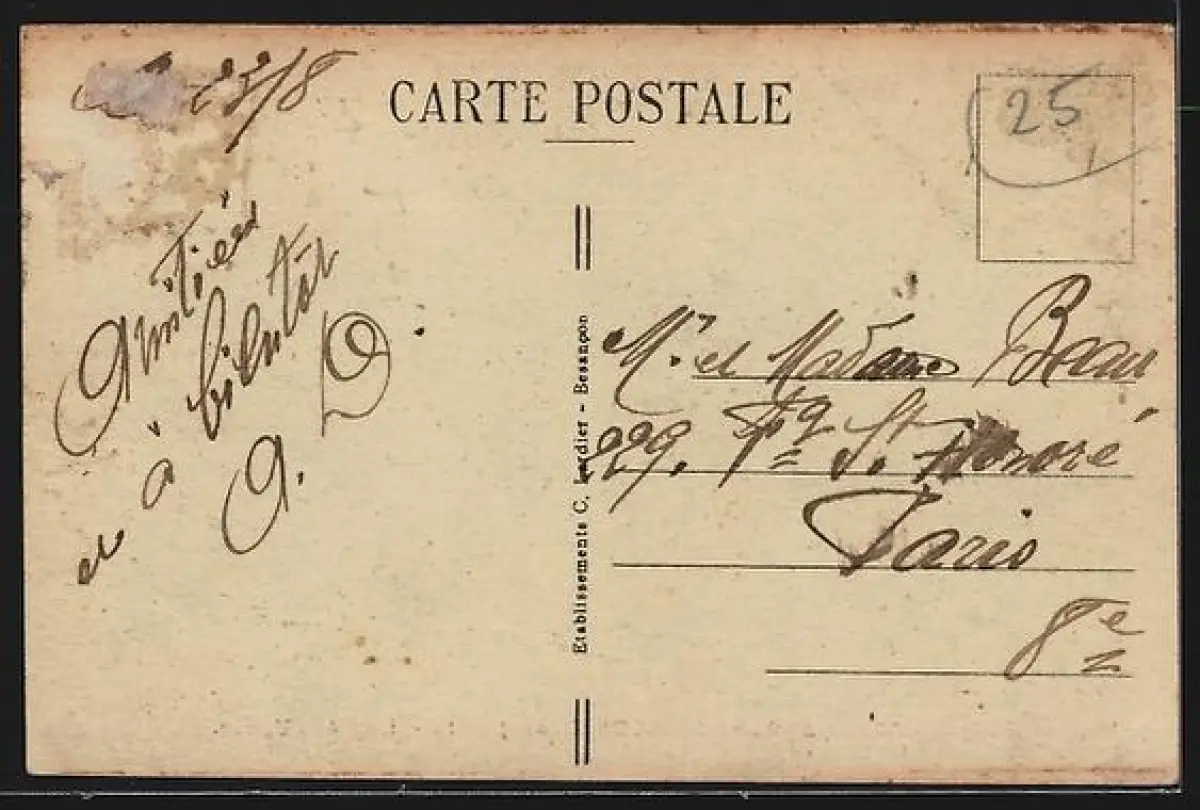 23/8
CARTE POSTALE
25
Amitiés
et à bientôt
A. D.
Mr. et Madame Beau
229, Fg St. Honoré
Paris
8e
Etablissements C. Lardier - Besançon